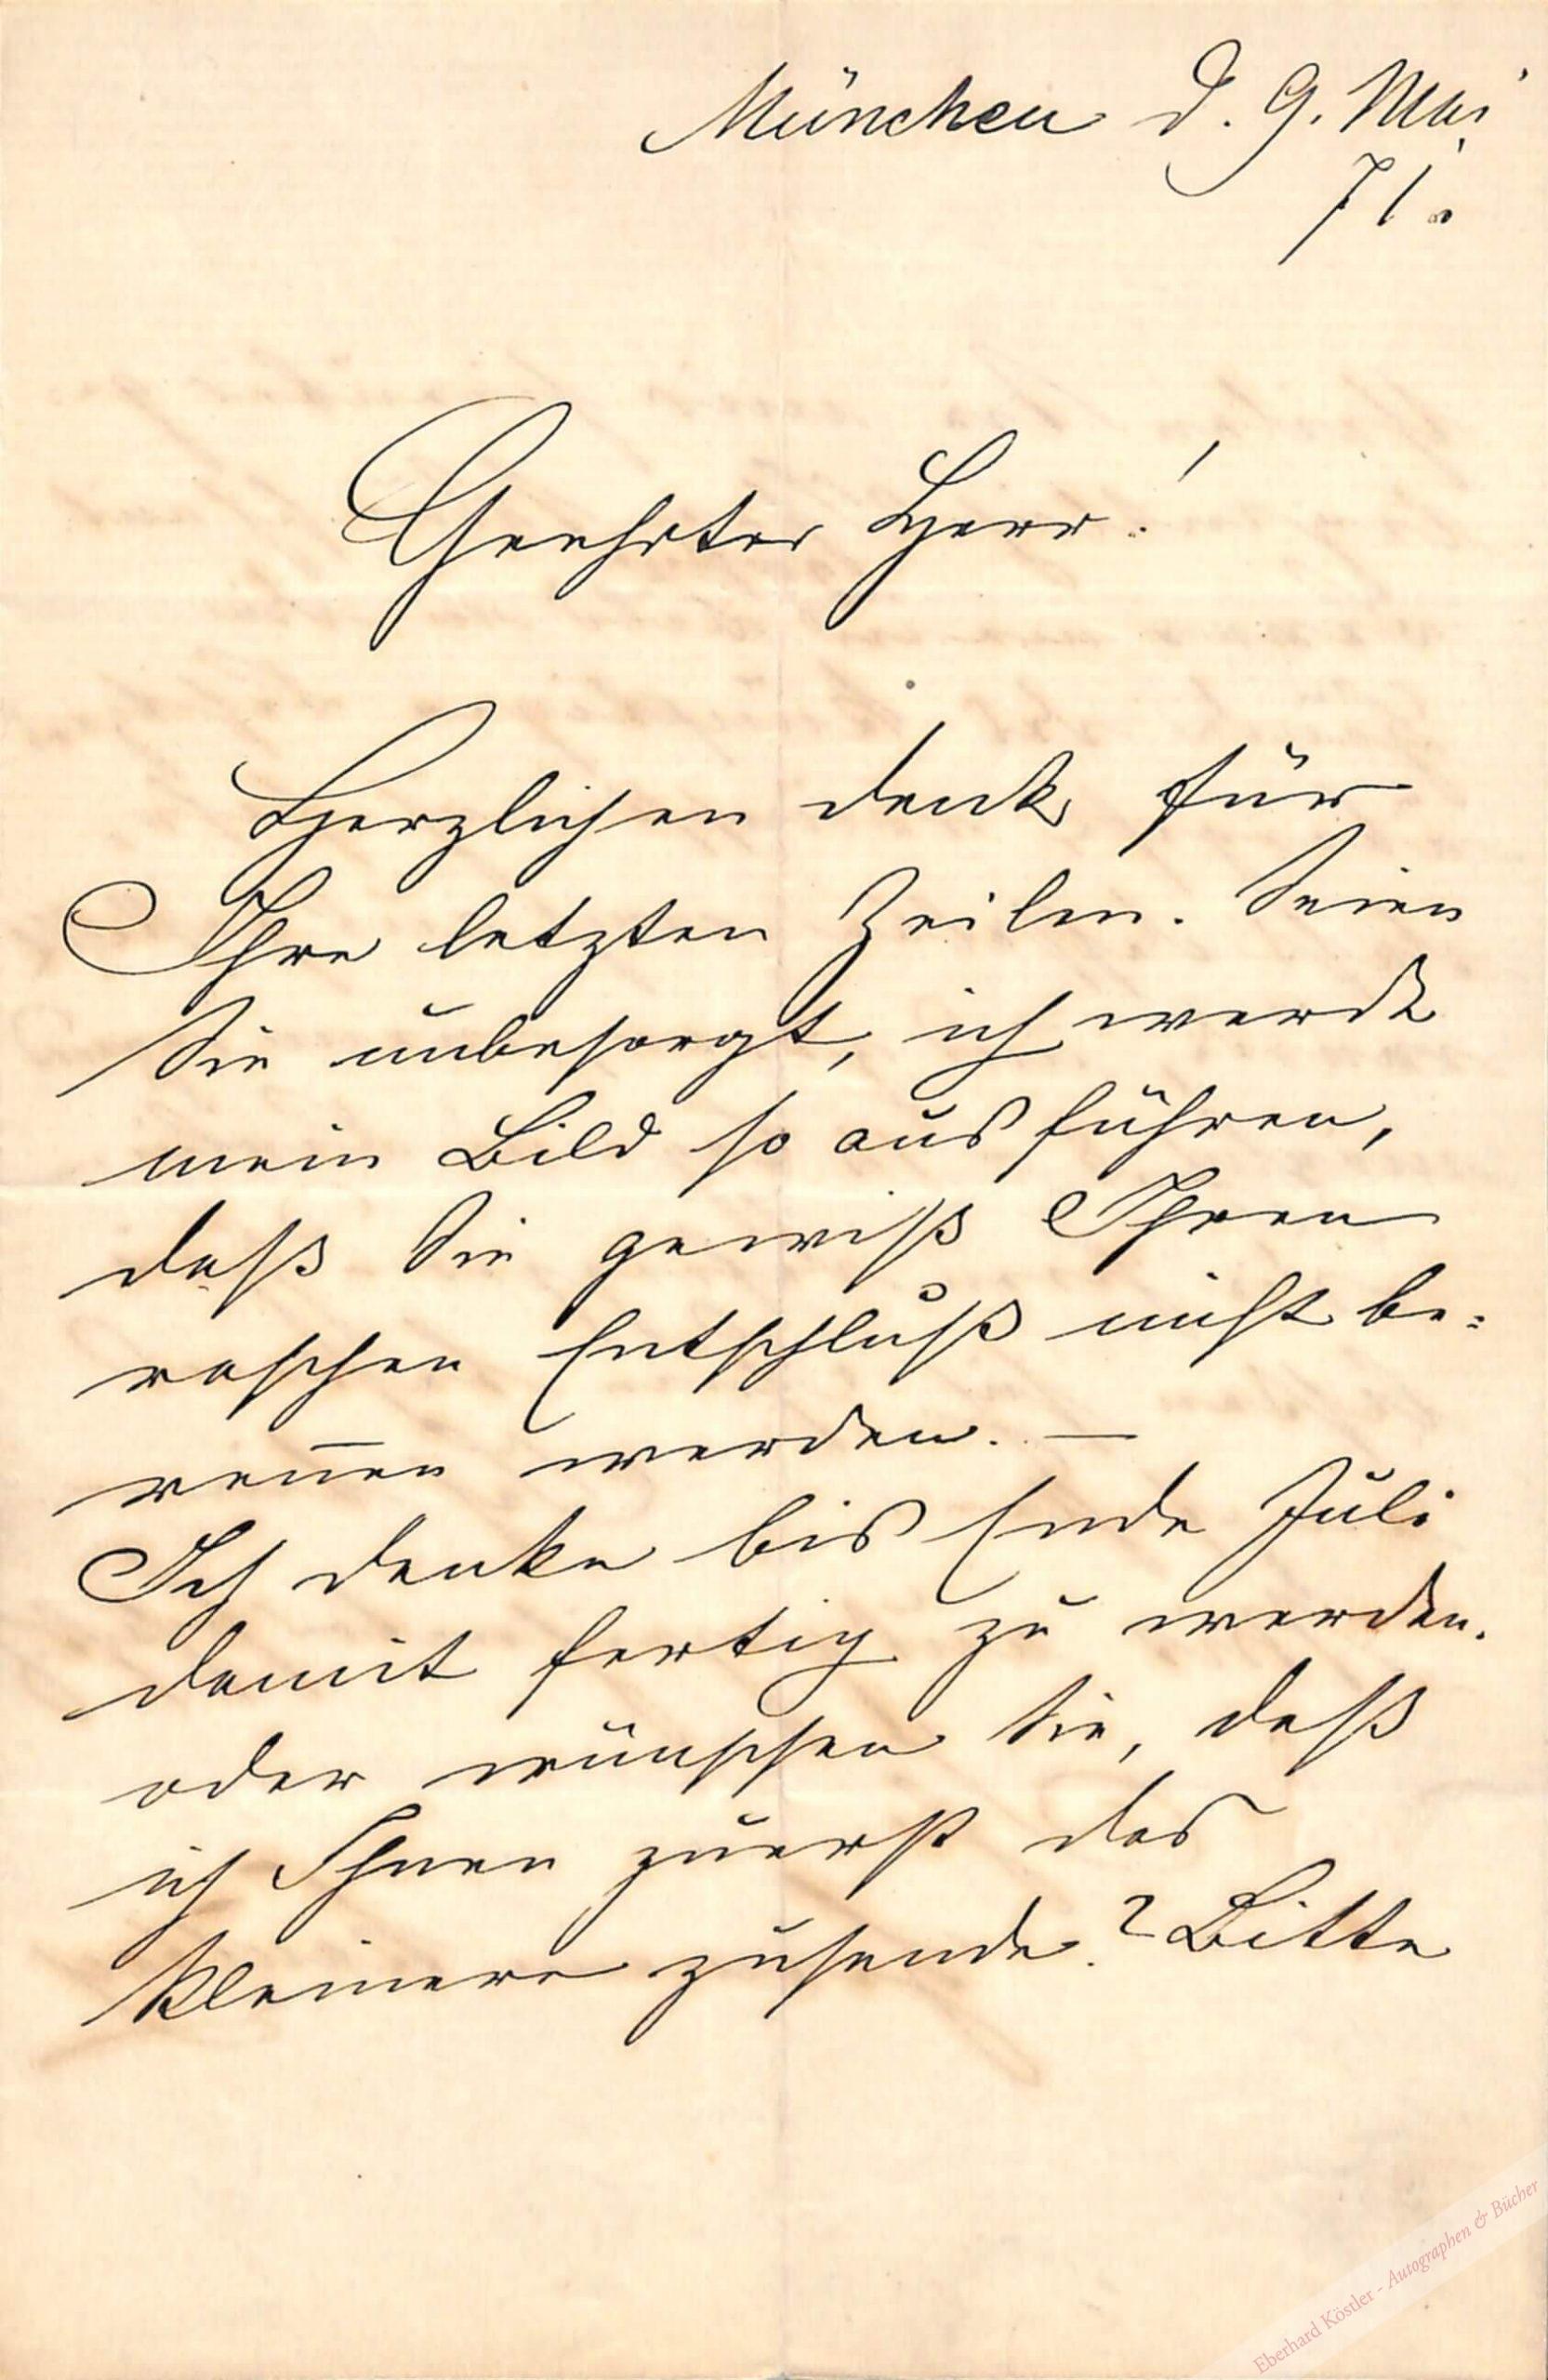 München d. 9. Mai
71.
Geehrter Herr!
Herzlichen dank für
Ihre letzten Zeilen. Seien
Sie unbesorgt, ich werde
mein Bild so ausführen,
daß Sie gewiß Ihren
raschen Entschluß nicht be-
reuen werden. —
Ich denke bis Ende Juli
damit fertig zu werden.
oder wünschen Sie, daß
ich Ihnen zuerst das
Kleinere zusende? Bitte
Eberhard Köstler - Autographen & Bücher